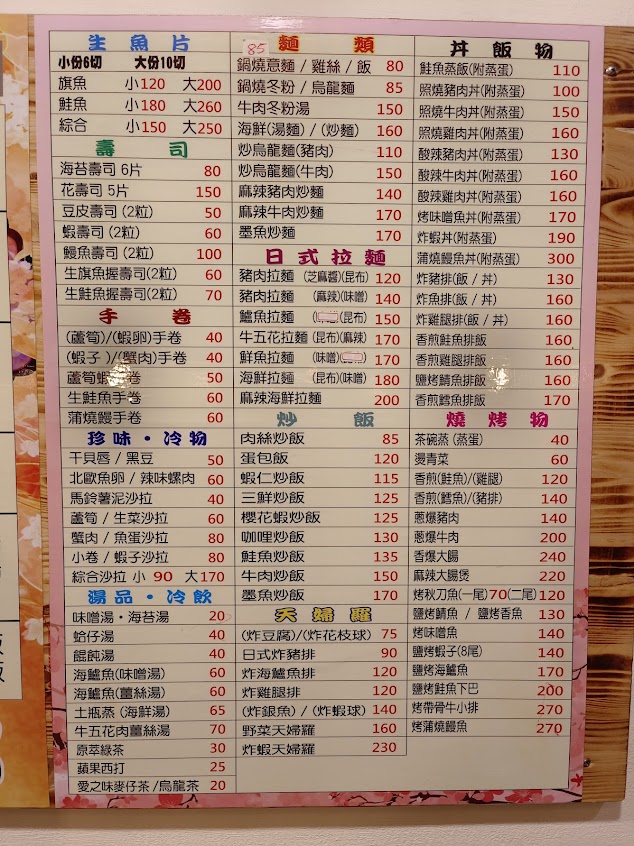 生魚片
小份6切 大份10切
旗魚 小120 大200
鮭魚 小180 大260
綜合 小150 大250
壽司
海苔壽司 6片 80
花壽司 5片 150
豆皮壽司 (2粒) 50
蝦壽司 (2粒) 60
鰻魚壽司 (2粒) 100
生旗魚握壽司(2粒) 60
生鮭魚握壽司(2粒) 70
手卷
(蘆筍)/(蝦卵)手卷 40
(蝦子)/(蟹肉)手卷 40
蘆筍蝦 卷 50
生鮭魚手卷 60
蒲燒鰻手卷 60
珍味・冷物
干貝唇 / 黑豆 50
北歐魚卵 / 辣味螺肉 60
馬鈴薯泥沙拉 40
蘆筍 / 生菜沙拉 60
蟹肉 / 魚蛋沙拉 80
小卷 / 蝦子沙拉 80
綜合沙拉 小 90 大170
湯品・冷飲
味噌湯・海苔湯 20
蛤仔湯 40
餛飩湯 40
海鱸魚(味噌湯) 60
海鱸魚(薑絲湯) 60
土瓶蒸 (海鮮湯) 65
牛五花肉薑絲湯 70
原萃綠茶 30
蘋果西打 25
愛之味麥仔茶 /烏龍茶 20
85 麵類
鍋燒意麵 / 雞絲 / 飯 80
鍋燒冬粉 / 烏龍麵 85
牛肉冬粉湯 150
海鮮(湯麵) / (炒麵) 160
炒烏龍麵(豬肉) 110
炒烏龍麵(牛肉) 150
麻辣豬肉炒麵 140
麻辣牛肉炒麵 170
墨魚炒麵 170
日式拉麵
豬肉拉麵 (芝麻醬)(昆布) 120
豬肉拉麵 (麻辣)(味噌) 140
鱸魚拉麵 (昆布) 150
牛五花拉麵 (昆布)(麻辣) 170
鮮魚拉麵 (味噌) 170
海鮮拉麵 (昆布)(味噌) 180
麻辣海鮮拉麵 200
炒飯
肉絲炒飯 85
蛋包飯 120
蝦仁炒飯 115
三鮮炒飯 125
櫻花蝦炒飯 125
咖哩炒飯 130
鮭魚炒飯 135
牛肉炒飯 150
墨魚炒飯 170
天婦羅
(炸豆腐)/(炸花枝球) 75
日式炸豬排 90
炸海鱸魚排 120
炸雞腿排 120
(炸銀魚) / (炸蝦球) 140
野菜天婦羅 160
炸蝦天婦羅 230
丼飯物
鮭魚蒸飯(附蒸蛋) 110
照燒豬肉丼(附蒸蛋) 100
照燒牛肉丼(附蒸蛋) 150
照燒雞肉丼(附蒸蛋) 160
酸辣豬肉丼(附蒸蛋) 130
酸辣牛肉丼(附蒸蛋) 160
酸辣雞肉丼(附蒸蛋) 160
烤味噌魚丼(附蒸蛋) 170
炸蝦丼(附蒸蛋) 190
蒲燒鰻魚丼(附蒸蛋) 300
炸豬排(飯 / 丼) 130
炸魚排(飯 / 丼) 160
炸雞腿排(飯 / 丼) 160
香煎鮭魚排飯 160
香煎雞腿排飯 160
鹽烤鯖魚排飯 160
香煎鱈魚排飯 170
燒烤物
茶碗蒸 (蒸蛋) 40
燙青菜 60
香煎(鮭魚)/(雞腿) 120
香煎(鱈魚)/(豬排) 140
蔥爆豬肉 140
蔥爆牛肉 200
香爆大腸 240
麻辣大腸煲 220
烤秋刀魚(一尾)70(二尾)120
鹽烤鯖魚 / 鹽烤香魚 130
烤味噌魚 140
鹽烤蝦子(8尾) 140
鹽烤海鱸魚 170
鹽烤鮭魚下巴 200
烤帶骨牛小排 270
烤蒲燒鰻魚 270